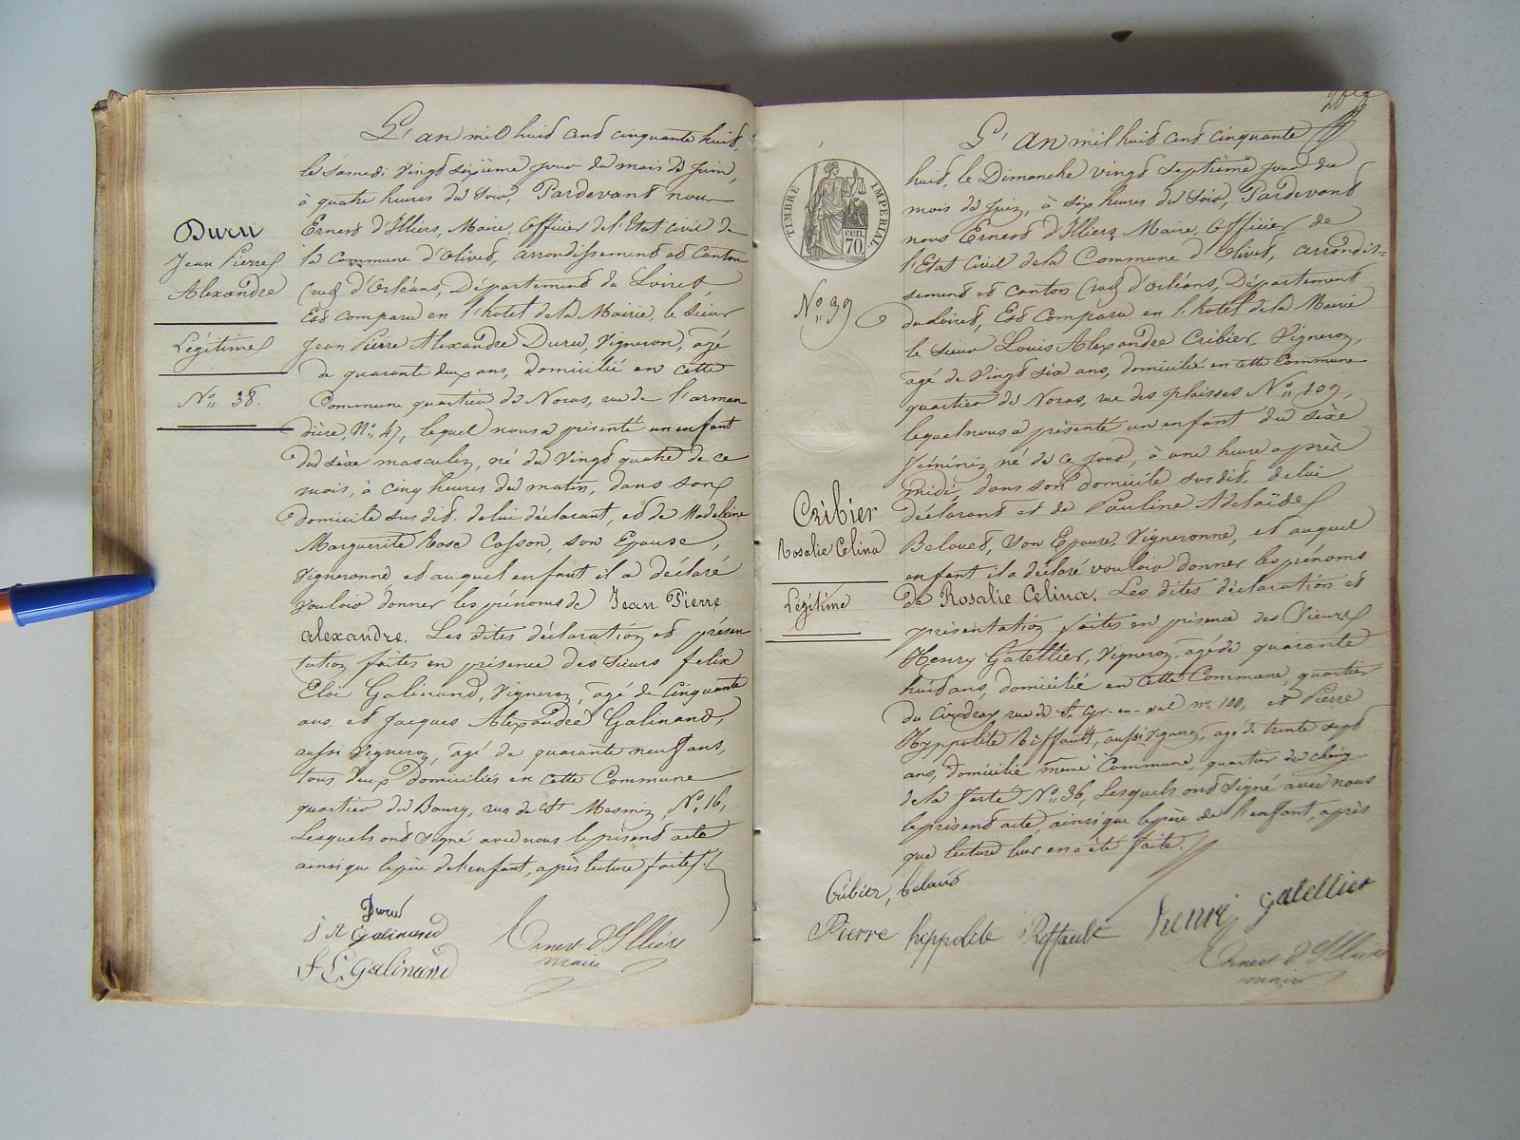 Duru
Jean Pierre
Alexandre
Légitime
No. 38.
L'an mil huit cent cinquante huit,
le samedi vingt sixième jour du mois de Juin,
à quatre heures du soir, Pardevant nous
Ernest d'Illiers, Maire, Officier de l'Etat civil de
la Commune d'Olivet, arrondissement et canton
(sud) d'Orléans, Département du Loiret,
Est comparu en l'hotel de la Mairie, le Sieur
Jean Pierre Alexandre Duru, Vigneron, agé
de quarante deux ans, domicilié en cette
Commune quartier du Noras, rue de l'arman
dière, No. 47, lequel nous a présenté un enfant
du sèxe masculin, né du Vingt quatre de ce
mois, à cinq heures du matin, dans son
domicile sus dit. de lui déclarant, et de Madeleine
Marguerite Rose Cosson, son Epouse,
Vigneronne et auquel enfant il a déclaré
vouloir donner les prénoms de Jean Pierre
alexandre. Les dites déclaration et présen
tation faites en présence des sieurs felix
Eloi Galinand, Vigneron, agé de Cinquante
ans, et Jacques Alexandre Galinand,
aussi Vigneron, agé de quarante neuf ans,
tous deux domiciliés en cette Commune
quartier du Bourg, rue de St Mesmin, No. 16,
Lesquels ont signé avec nous le présent acte
ainsi que le père de l'enfant, après lecture faite.
Duru
J A Galinand
F E Galinand
Ernest d'Illiers
maire
TIMBRE IMPERIAL
70 cen.
No. 39
Cribier
Rosalie Celina
Légitime
L'An mil huit cent cinquante
huit, le Dimanche vingt septième jour du
mois de Juin, à six heures du soir, Pardevant
nous Ernest d'Illiers Maire, Officier de
l'Etat Civil de la Commune d'Olivet, arrondis=
sement et canton (sud) d'Orléans, Département
du Loiret, Est Comparu en l'hotel de la Mairie
le sieur Louis Alexandre Cribier, Vigneron,
agé de Vingt six ans, domicilié en cette Commune
quartier du Noras, rue des plaisses No. 109,
lequel nous a présenté un enfant du sèxe
féminin né de ce jour, à une heure après
midi, dans son domicile sus dit, de lui
déclarant et de Pauline Adelaïde
Belouet, Son Epouse, Vigneronne, et auquel
enfant il a déclaré vouloir donner les prénoms
de Rosalie Celina. Les dites déclaration et
présentation faites en présence des Sieurs
Henry Gatellier, Vigneron, agé de quarante
huit ans, domicilié en cette Commune, quartier
du rue de St Cyr-en-val No. 100, et Pierre
Hyppolite Riffault, aussi Vigneron, agé de trente sept
ans, domicilié même Commune, quartier du
de la Ferté No. 36, Lesquels ont signé avec nous
le présent acte, ainsi que le père de l'enfant, après
que lecture leur en a été faite.
Cribier,
Pierre hyppolite Riffault henri gatellier
Ernest d'Illiers
maire